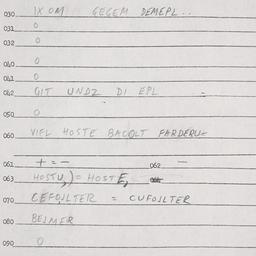 030 IX OM GEGEM DEMEPL..
031 0
032 0
040 0
041 0
042 GIT UNDZ DI EPL =
050 0
060 VIEL HOSTE BACOLT FARDERU
061 + = - 062 -
063 HOSTU,) = HOSTE,
070 CEFOILTER = CUFOILTER
080 BEIMER
090 0